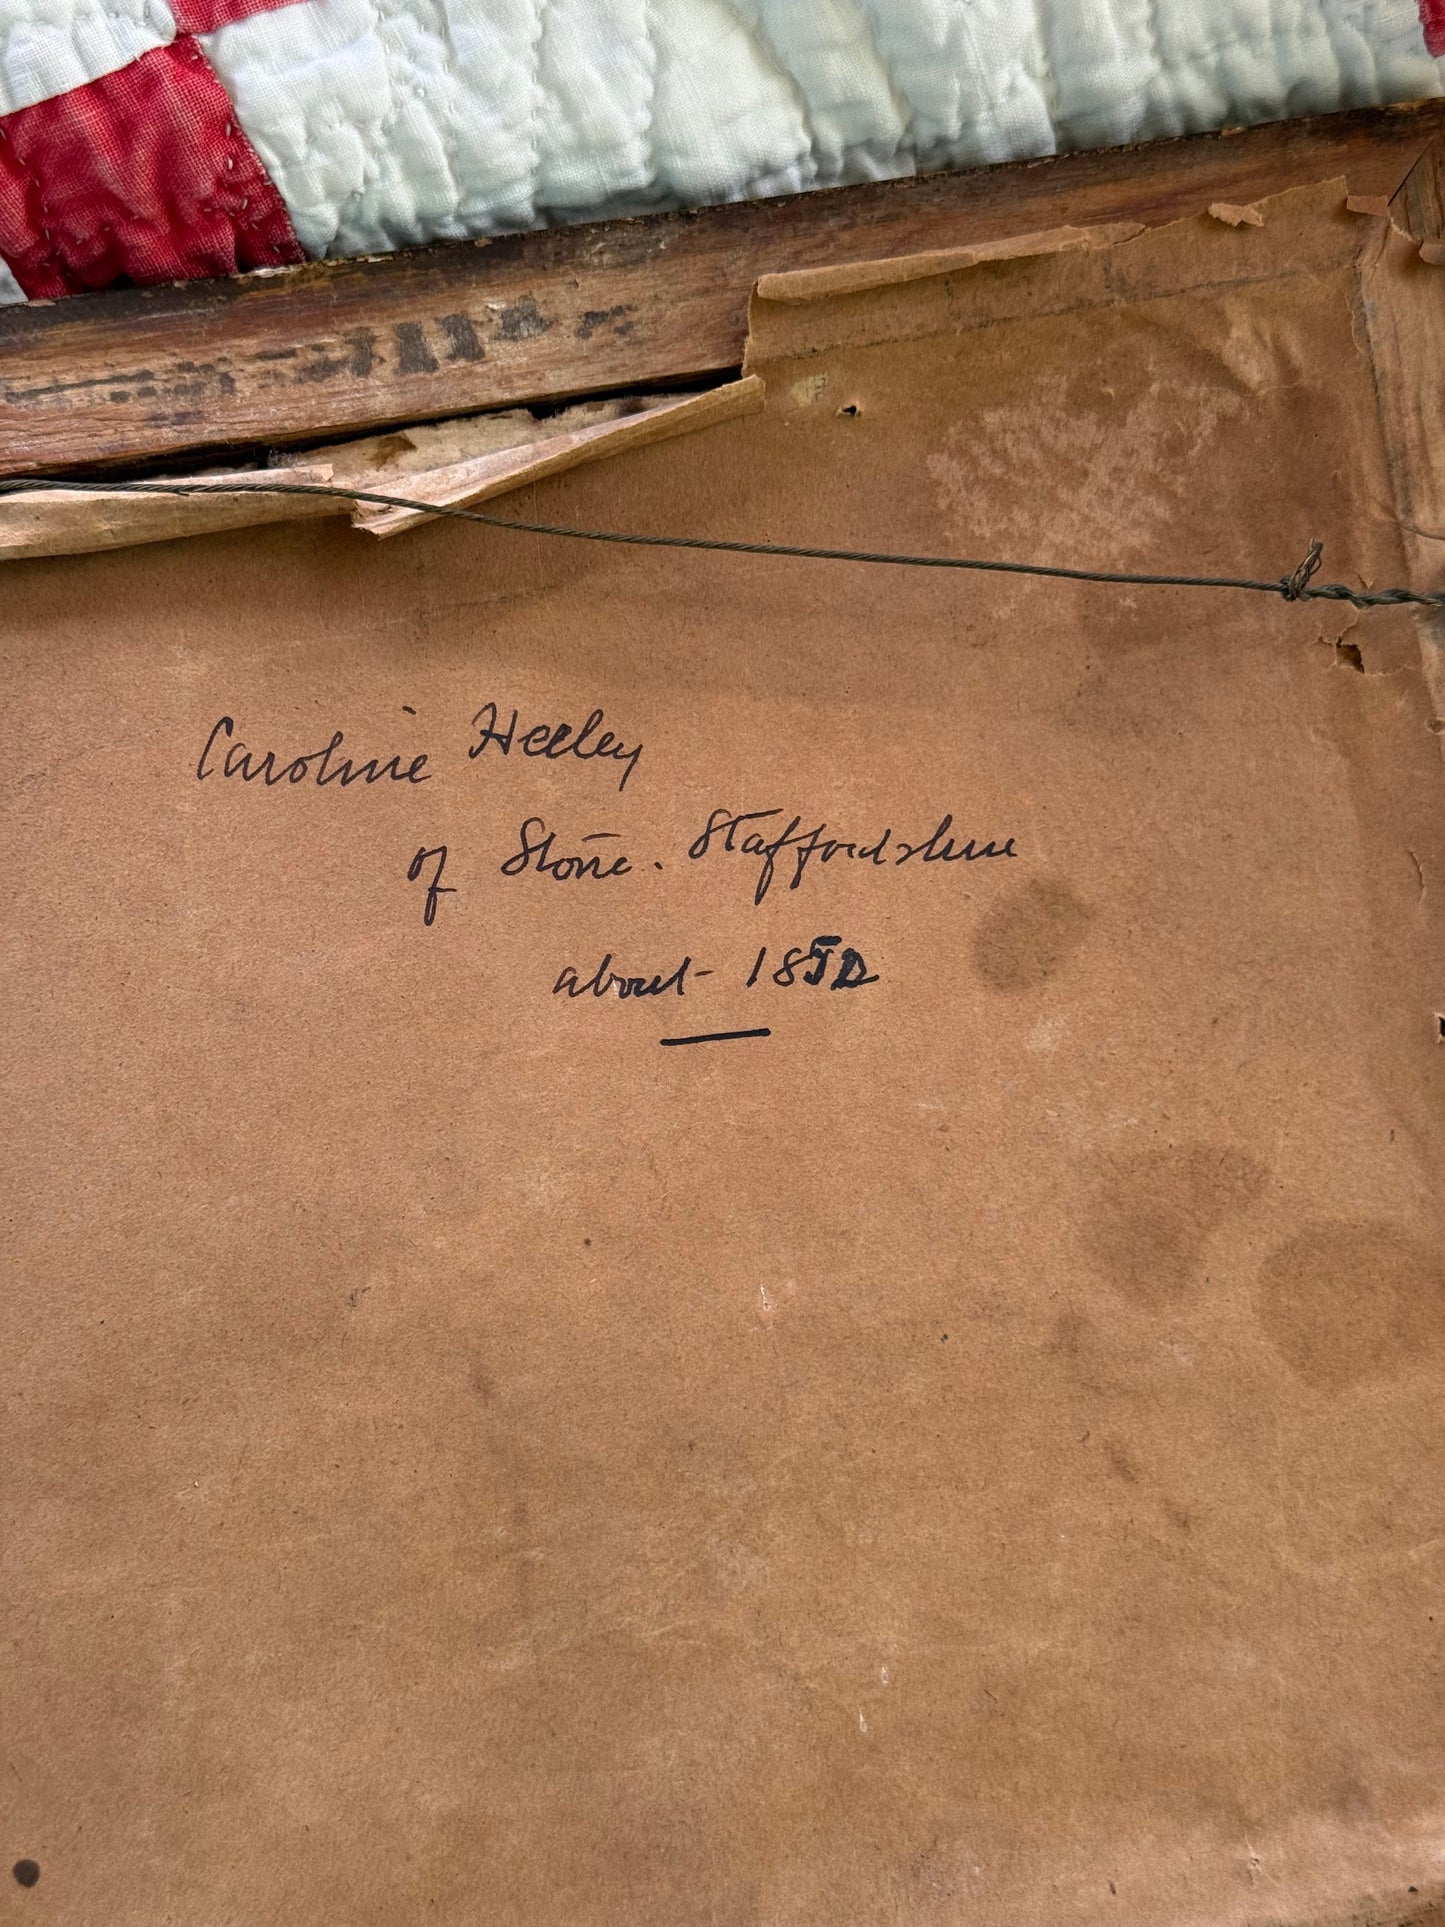 Caroline Heeley
of Stone. Staffordshire
about 1850